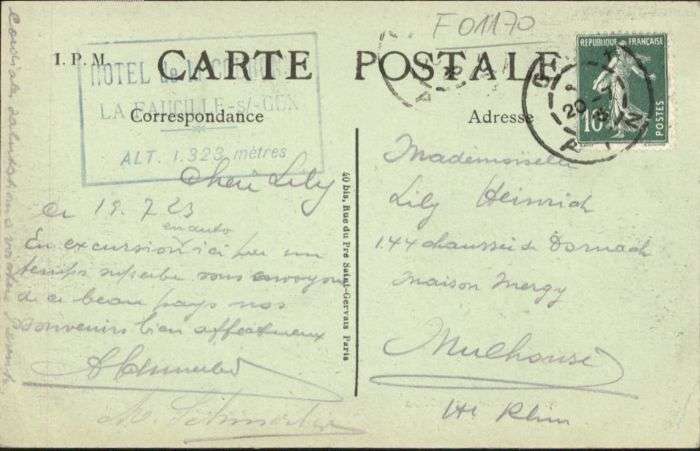 F01170
I. P. M.
CARTE POSTALE
HOTEL de la
LA FAUCILLE-s/-GEX
ALT. 1.323 mètres
Correspondance
Adresse
REPUBLIQUE FRANÇAISE
10
POSTES
Cheri Lily
ce 19.7 23
en auto
En excursion ici par un
temps superbe vous envoyons
de ce beau pays nos
souvenirs bien affectueux
40 bis, Rue du Pré Saint-Gervais Paris
Mademoiselle
Lily Heinrich
144 chaussée de Dornach
Maison Mergy
Mulhouse
Ht Rhin